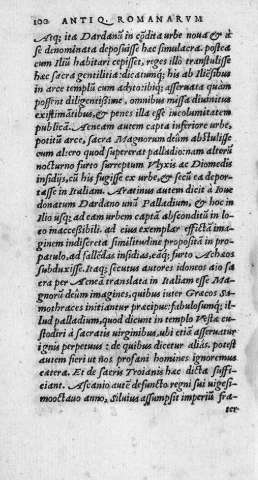 100 ANTIQ. ROMANARVM
Atq; ita Dardanũ in cõdita urbe noua & à
se denominata deposuisse hæc simulacra. postea
cum Iliũ habitari cepisset, reges illò transtulisse
hæc sacra gentilitia: dicatumq; his ab Iliēsibus
in arce templũ cum adytoribiq; asseruata quam
possent diligentissime, omnibus missa diuinitus
existimātibus, & penes illa esse incolumitatem
publicã. Aeneam autem capta inferiore urbe,
potitũ arce, sacra Magnorum deũm abstulisse
cum altero quod supererat palladio: nam alterũ
nocturno furto surreptum Vlyxis ac Diomedis
insidijs, cũ his fugisse ex urbe, & secũ ea depor-
tasse in Italiam. Aratinus autem dicit à Ioue
donatum Dardano unũ Palladium, & hoc in
Ilio usq; ad eam urbem captã absconditũ in lo-
co inaccessibili. ad eius exemplar effictã ima-
ginem indiscreta similitudine propositã in pro-
patulo, ad fallēdas insidias, eãq; furto Achæos
subduxisse. Itaq; secutus autores idoneos aio sa
cra per Aeneã translata in Italiam esse Ma-
gnorũ deũm imagines, quibus inter Græcos Sa-
mothraces initiantur præcipue: fabulosumq; il-
lud palladium, quod dicunt in templo Vestæ cu-
stodiri à sacratis uirginibus, ubi etiã asseruatur
ignis perpetuus: de quibus dicetur aliàs. potest
autem fieri ut nos profani homines ignoremus
cætera. Et de sacris Troianis hæc dicta suffi-
ciant. Ascanio autē defuncto, regni sui uigesi-
mooctauo anno, Siluius assumpsit imperiũ fra-
ter